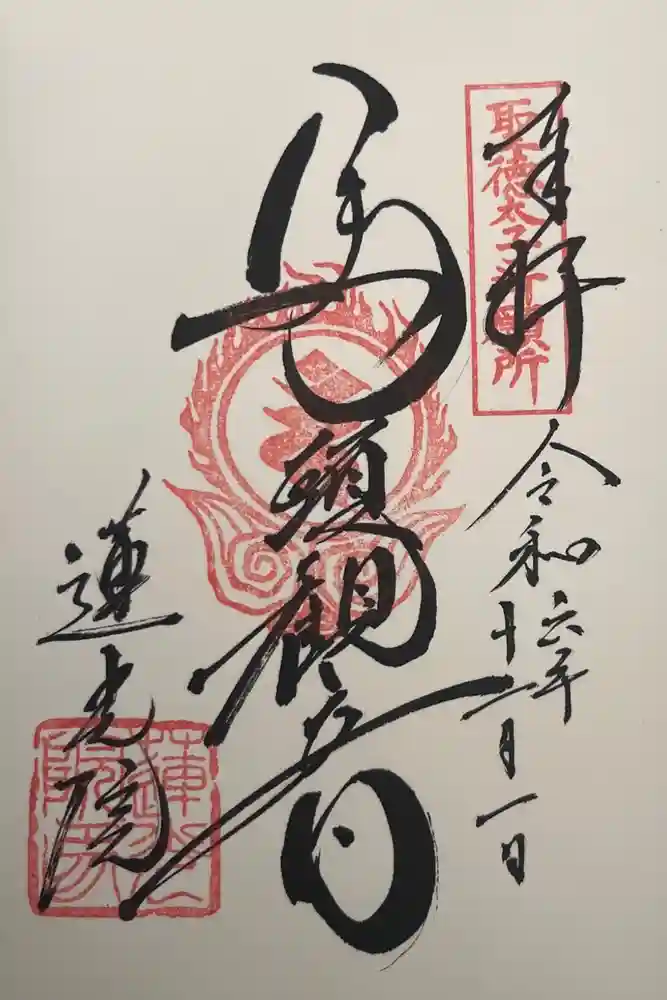 奉拝
聖徳太子祈願所
令和六年
十二月一日
馬頭観音
蓮光院